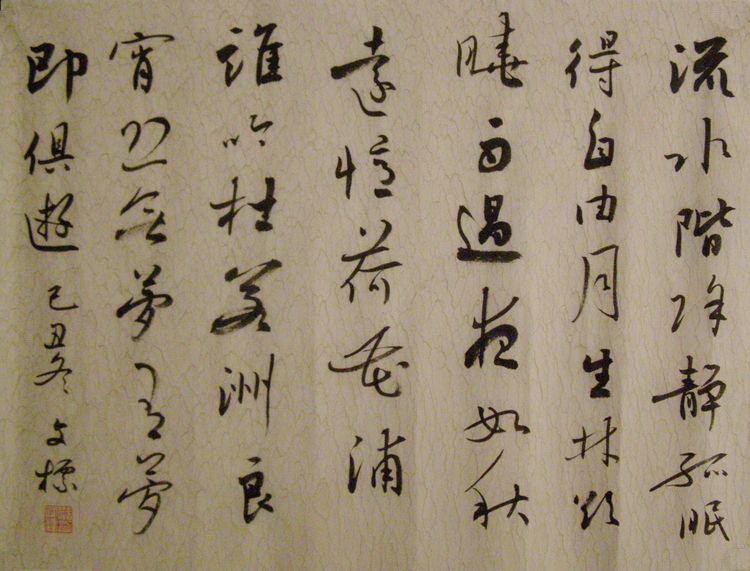 流水階除靜孤眠
得自由月生林欲
曉雨過夜如秋
遠憶荷花浦
誰吟杜若洲良
宵恐無夢有夢
即俱遊 己丑冬 文標